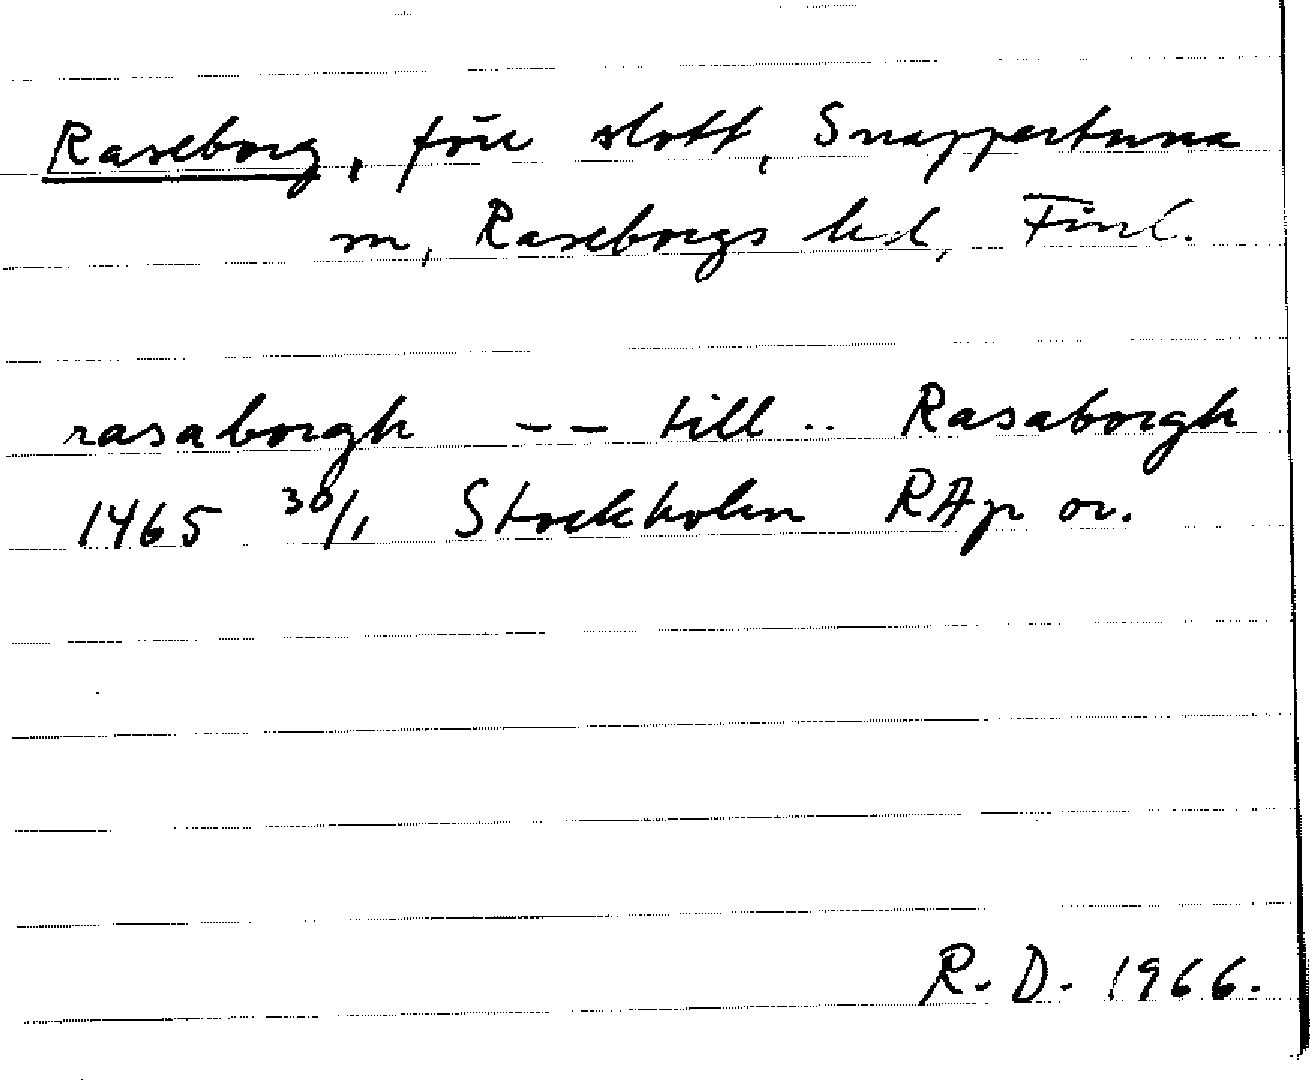 Raseborg, förr slott, Snappertuna
sn, Raseborgs hd, Finl.
rasaborgh -- till .. Rasaborgh
1465 30/1 Stockholm RAp or.
R. D. 1966.